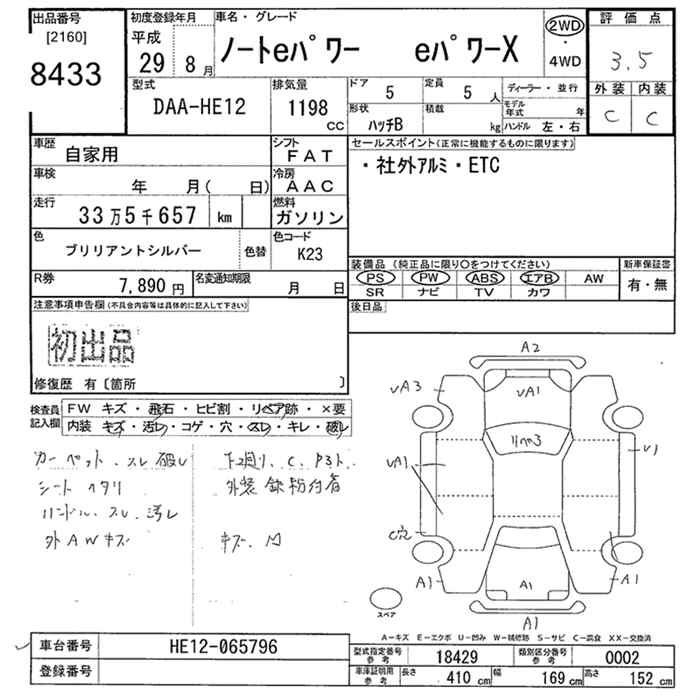 出品番号
[2160]
8433
初度登録年月
平成
29 8 月
車名・グレード
ノートeパワー eパワーX
2WD
・
4WD
評価点
3.5
外装 内装
C C
型式
DAA-HE12
排気量
1198
CC
ドア
5
定員
5 人
ディーラー・並行
形状
ハッチB
積載
kg
モデル年式 年
ハンドル 左・右
車歴
自家用
シフト
FAT
車検
年 月( 日)
冷房
AAC
走行
33万5千657 km
燃料
ガソリン
色
ブリリアントシルバー
色替
色コード
K23
R券
7,890 円
名変通知期限
月 日
セールスポイント(正常に機能するものに限ります)
・社外アルミ・ETC
装備品(純正品に限り○をつけてください)
PS PW ABS エアB AW
SR ナビ TV カワ
新車保証書
有・無
後日品
注意事項申告欄(不具合内容等は具体的に記入して下さい)
初出品
修復歴 有〔箇所 〕
検査員
記入欄
FW キズ・飛石・ヒビ割・リペア跡・×要
内装 キズ・汚レ・コゲ・穴・スレ・キレ・破レ
カーペット、スレ破レ
シート ヘタリ
ハンドル、スレ、汚レ
外AWキズ
下廻り、C、P3ト
外装鉄粉付着
キズ、凹
A2
UA3
UA1
リペア3
U1
UA1
C穴
A1
A1
A1
A1
スペア
A-キズ E-エクボ U-凹み W-補修跡 S-サビ C-腐食 XX-交換済
車台番号
HE12-065796
登録番号
型式指定番号
参考
18429
類別区分番号
参考
0002
車庫証明用
参考
長さ
410 cm
幅
169 cm
高さ
152 cm